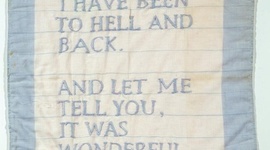 I HAVE BEEN
TO HELL AND
BACK.
AND LET ME
TELL YOU,
IT WAS
WONDERFUL